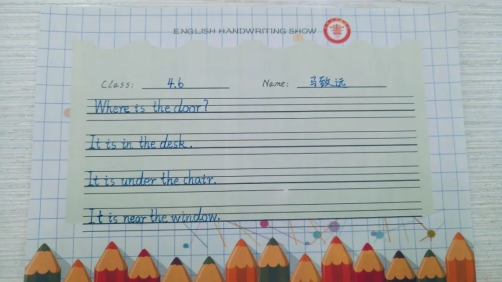 ENGLISH HANDWRITING SHOW
Class: 4.6 Name: 马敬远
Where is the door?
It is in the desk.
It is under the chair.
It is near the window.